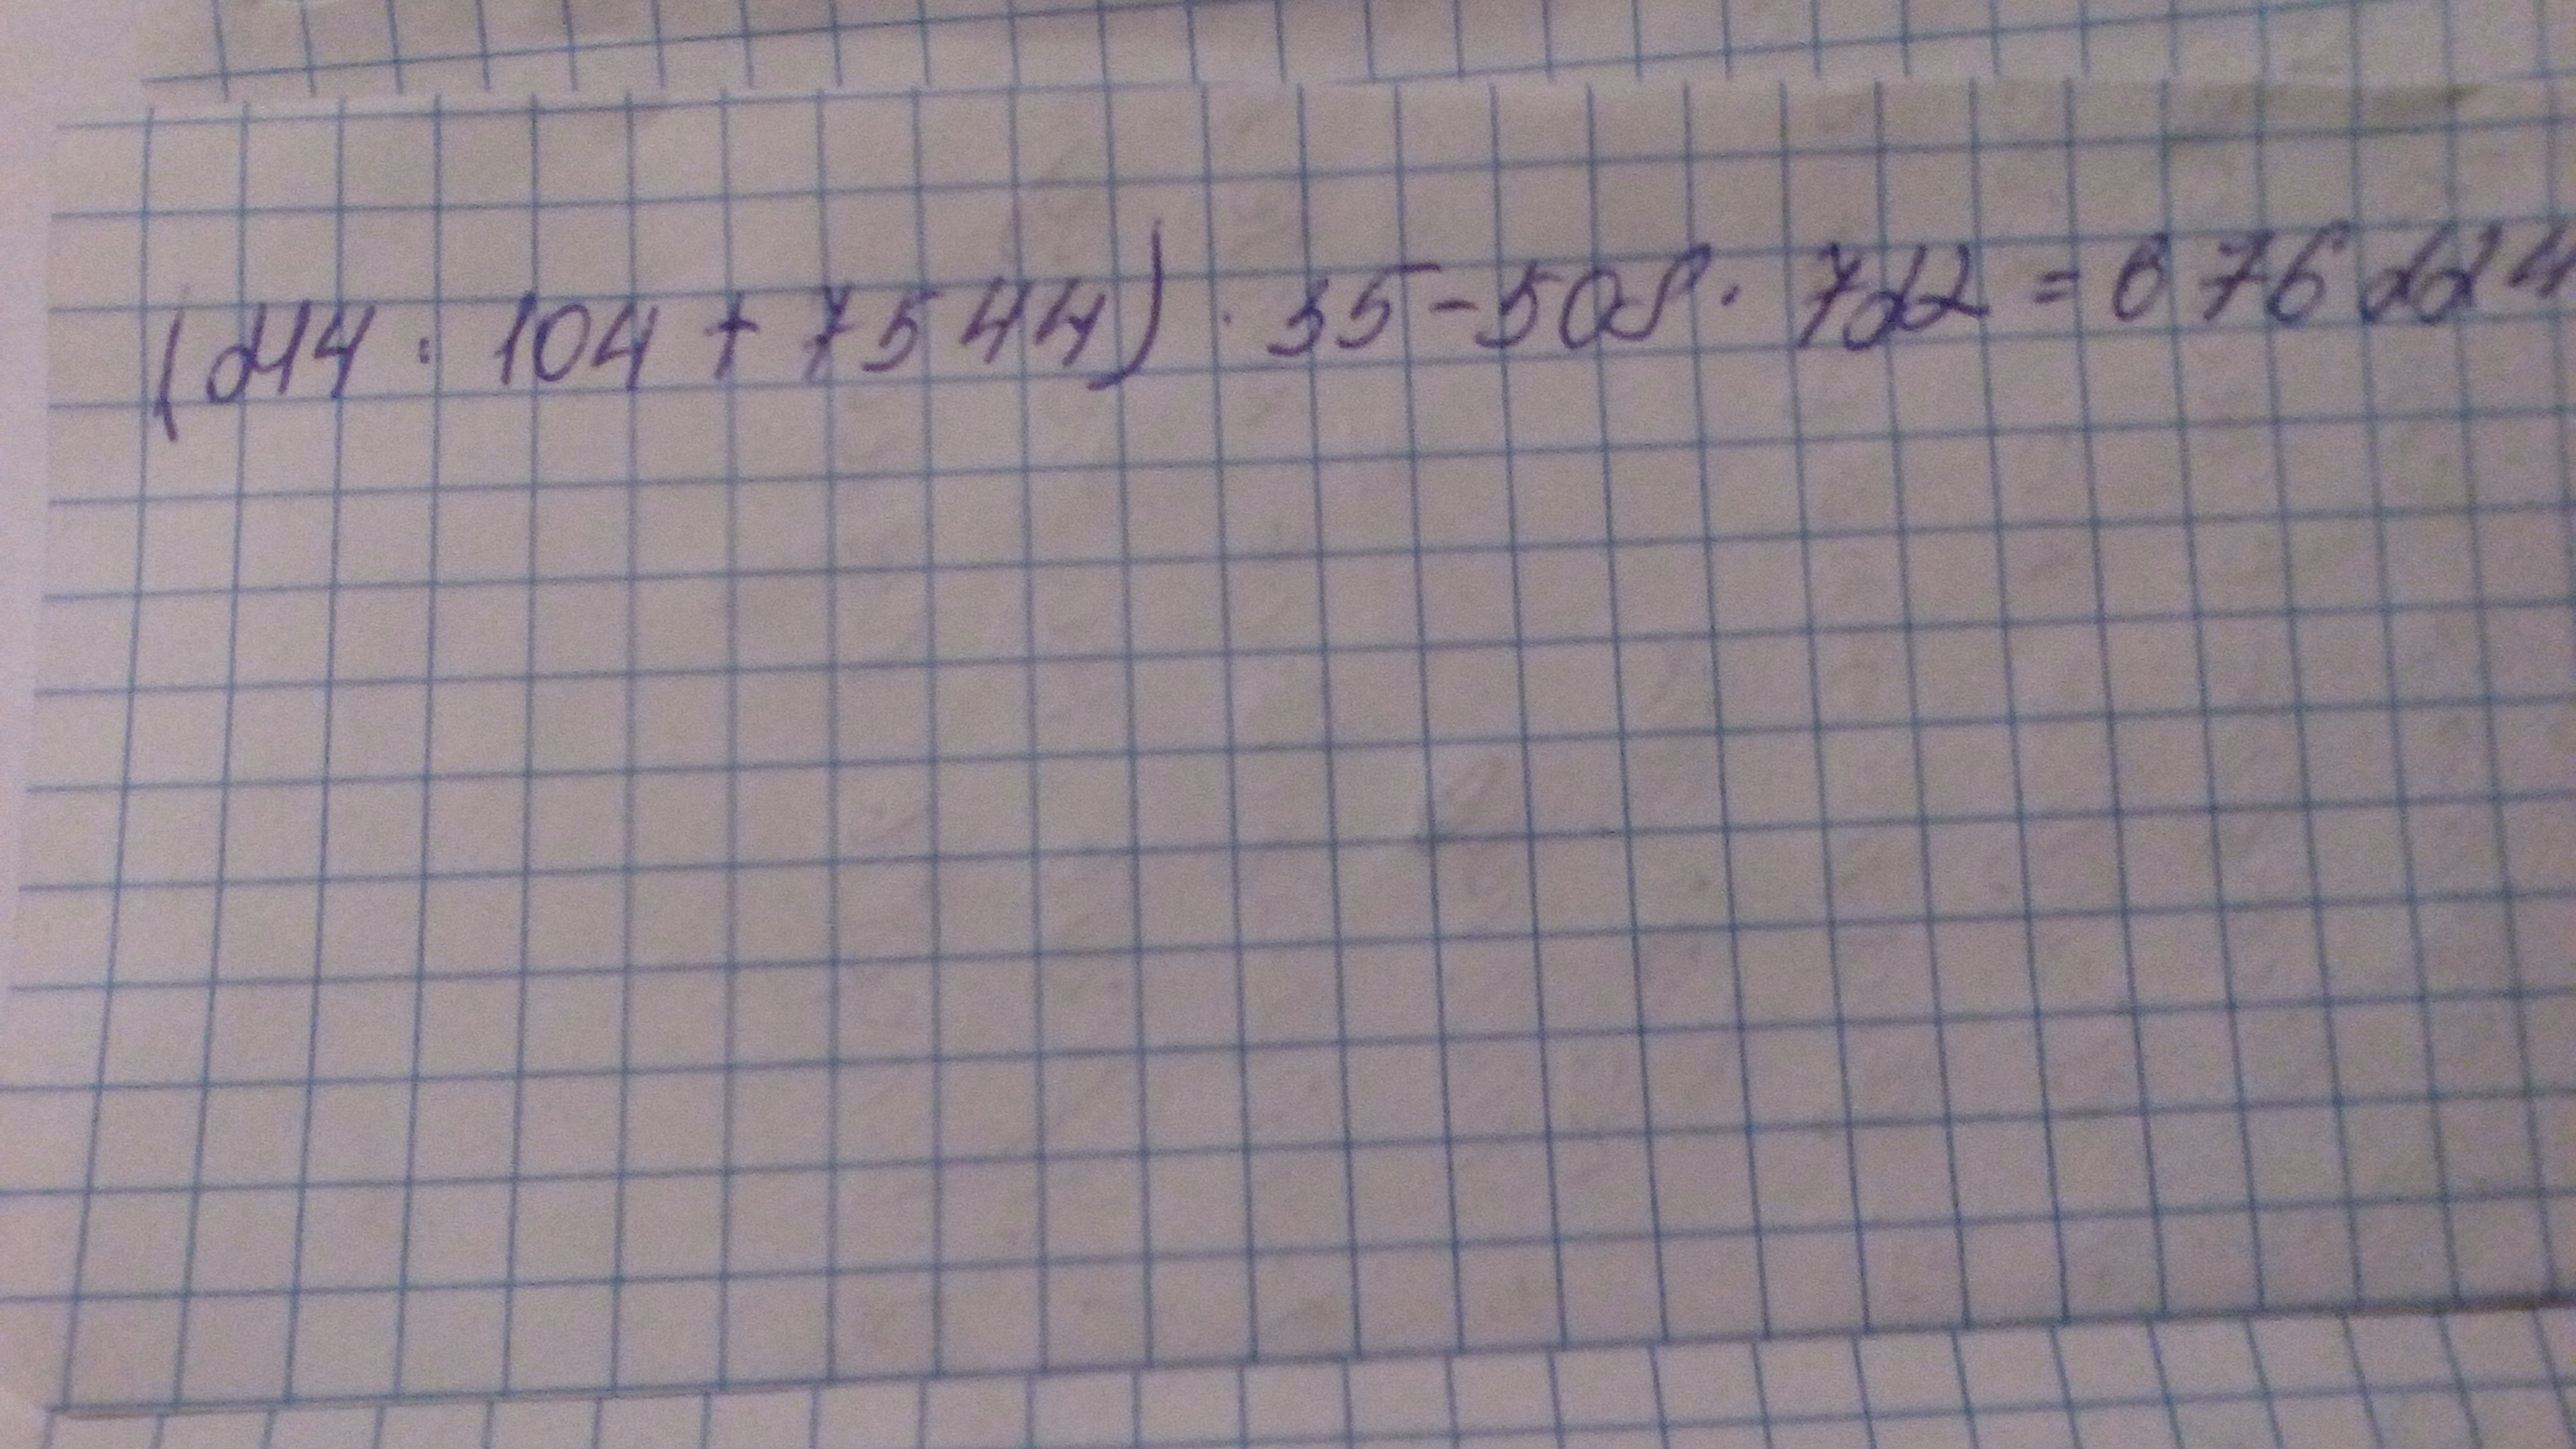 (214 · 104 + 7544) · 35 - 508 · 722 = 676224